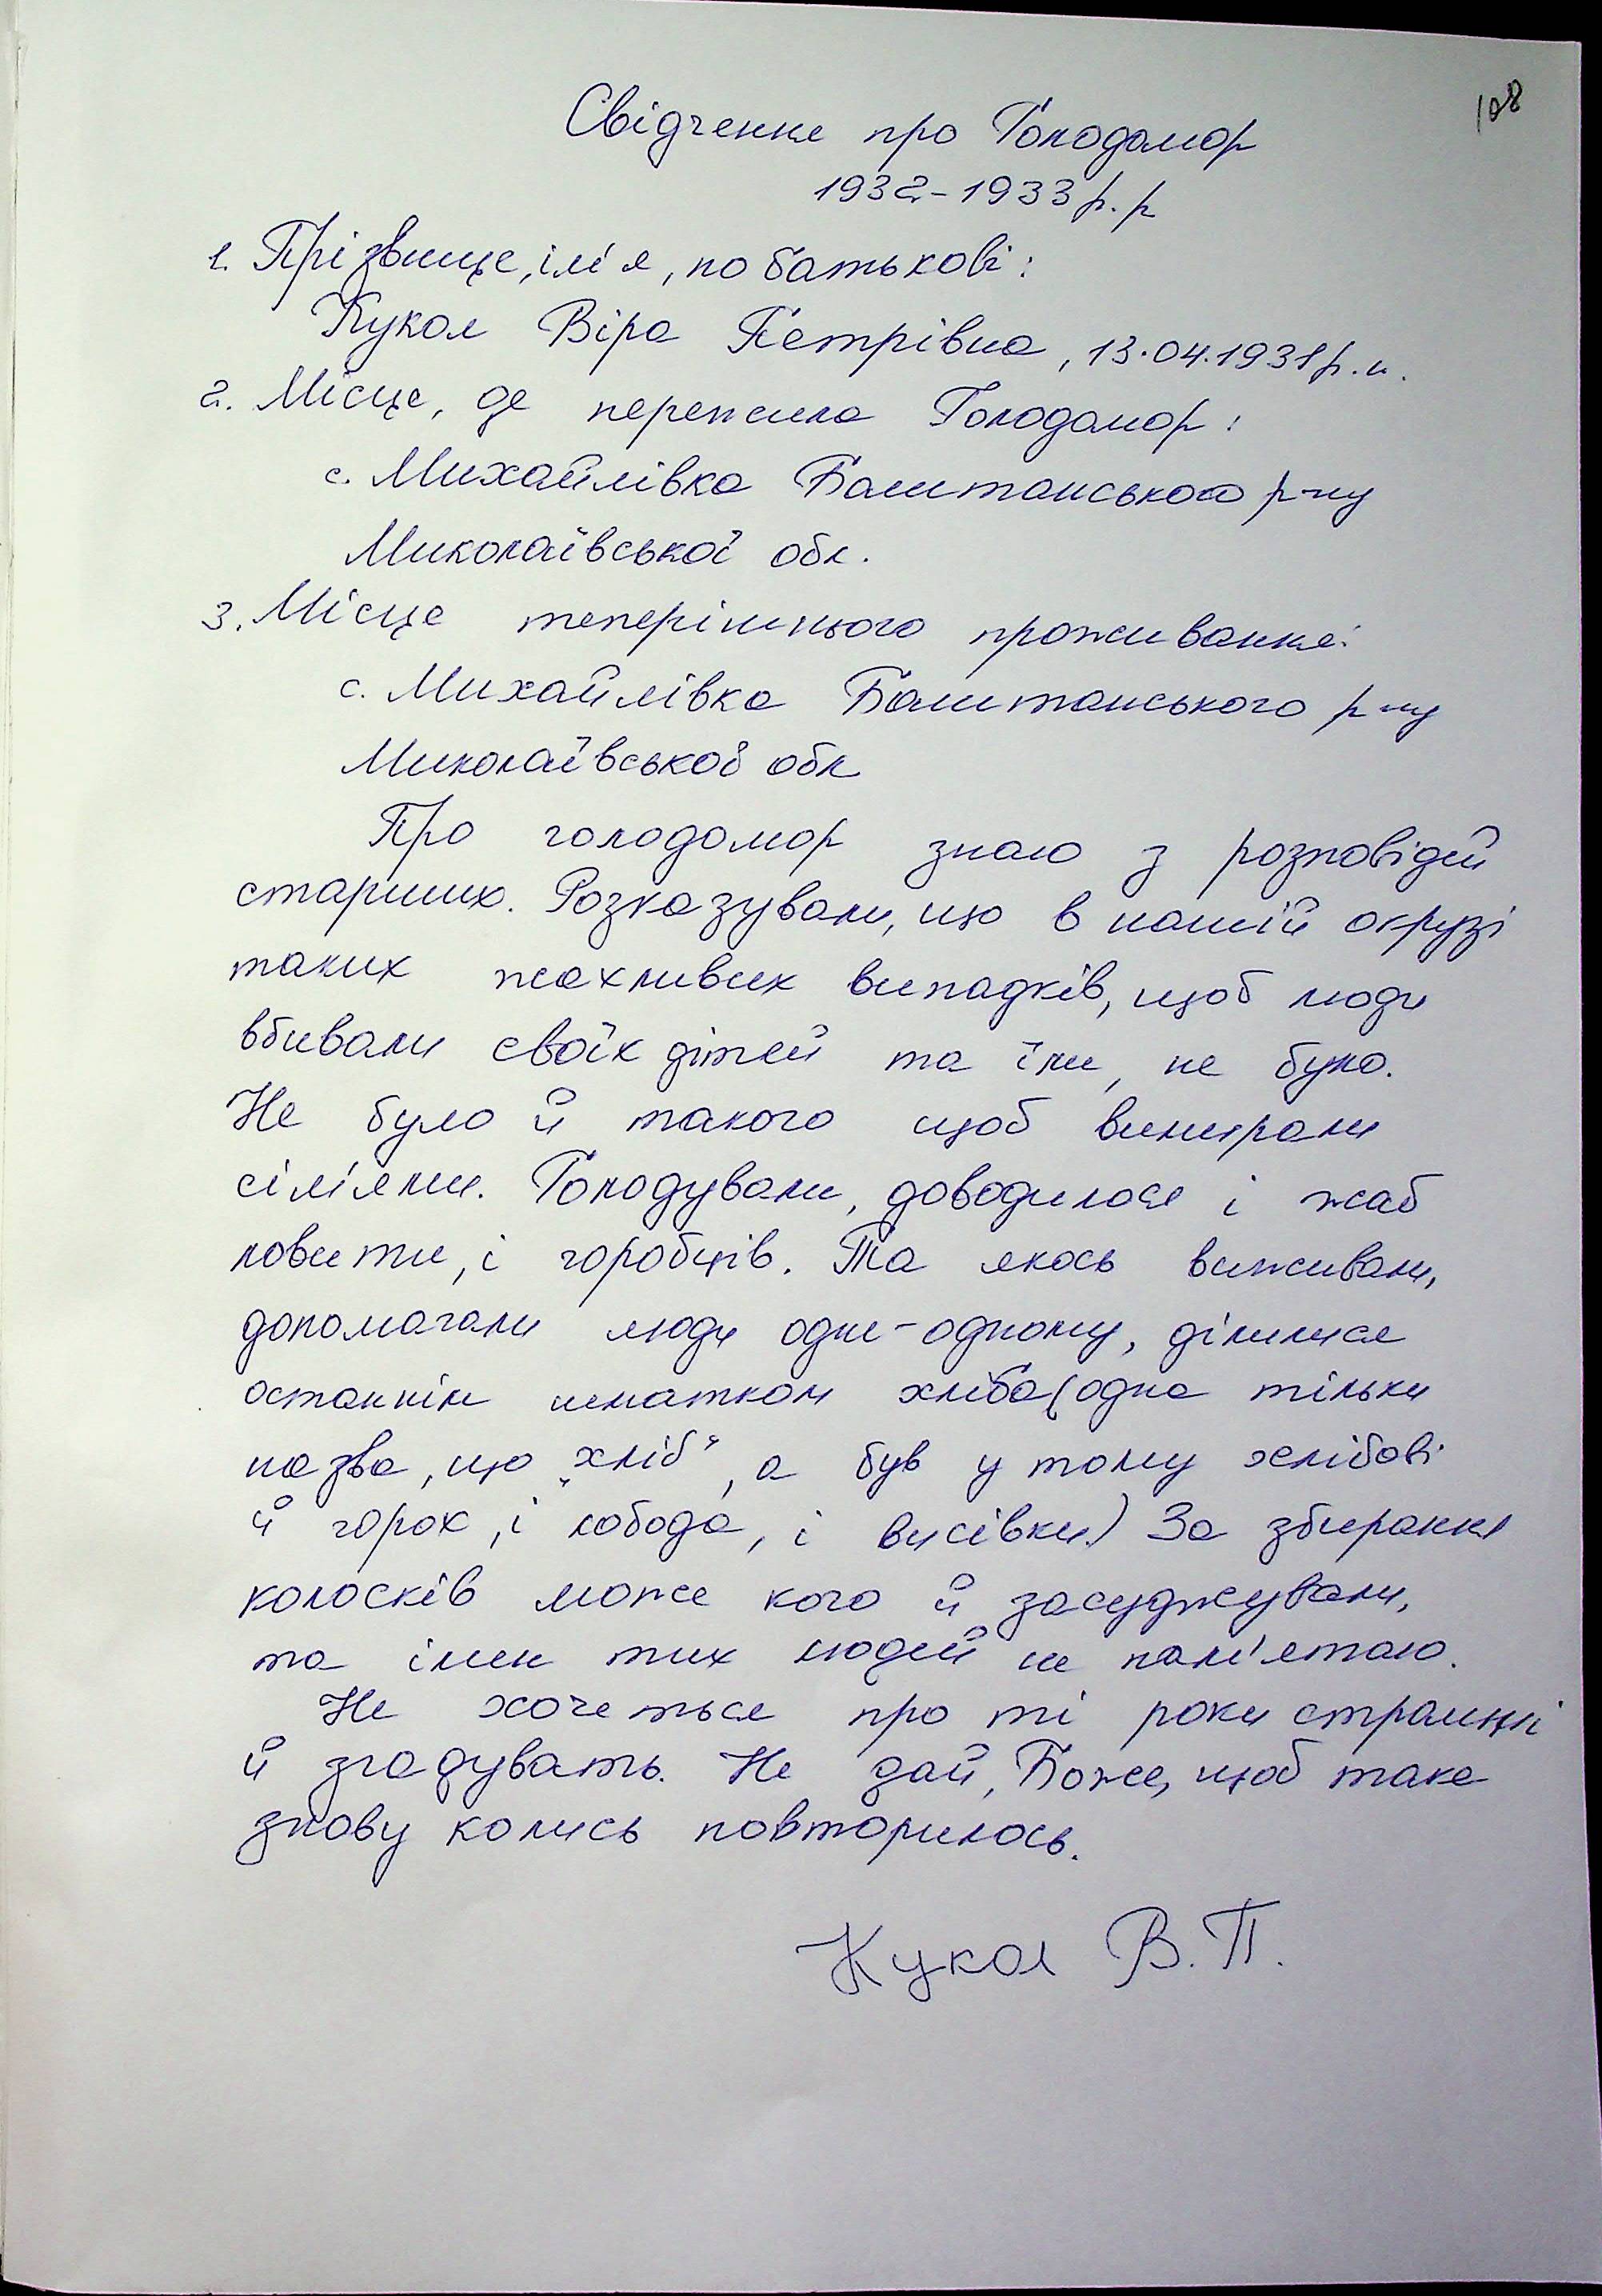 108
Свідчення про Голодомор
1932-1933 р. р
1. Прізвище, ім'я, по батькові:
Кукол Віра Петрівна, 13.04.1931 р.н.
2. Місце, де пережила Голодомор:
с. Михайлівка Баштанського р-ну
Миколаївської обл.
3. Місце теперішнього проживання:
с. Михайлівка Баштанського р-ну
Миколаївської обл
Про голодомор знаю з розповідей
старших. Розказували, що в нашій окрузі
таких жахливих випадків, щоб люди
вбивали своїх дітей та їли, не було.
Не було й такого щоб вимирали
сім'ями. Голодували, доводилося і жаб
ловити, і горобців. Та якось виживали,
допомагали люди одне-одному, ділилися
останнім шматком хліба (одна тільки
назва, що „хліб", а був у тому хлібові
й горох, і лобода, і висівки.) За збирання
колосків може кого й засуджували,
та імен тих людей не пам'ятаю.
Не хочеться про ті роки страшні
й згадувать. Не дай, Боже, щоб таке
знову колись повторилось.
Кукол В. П.